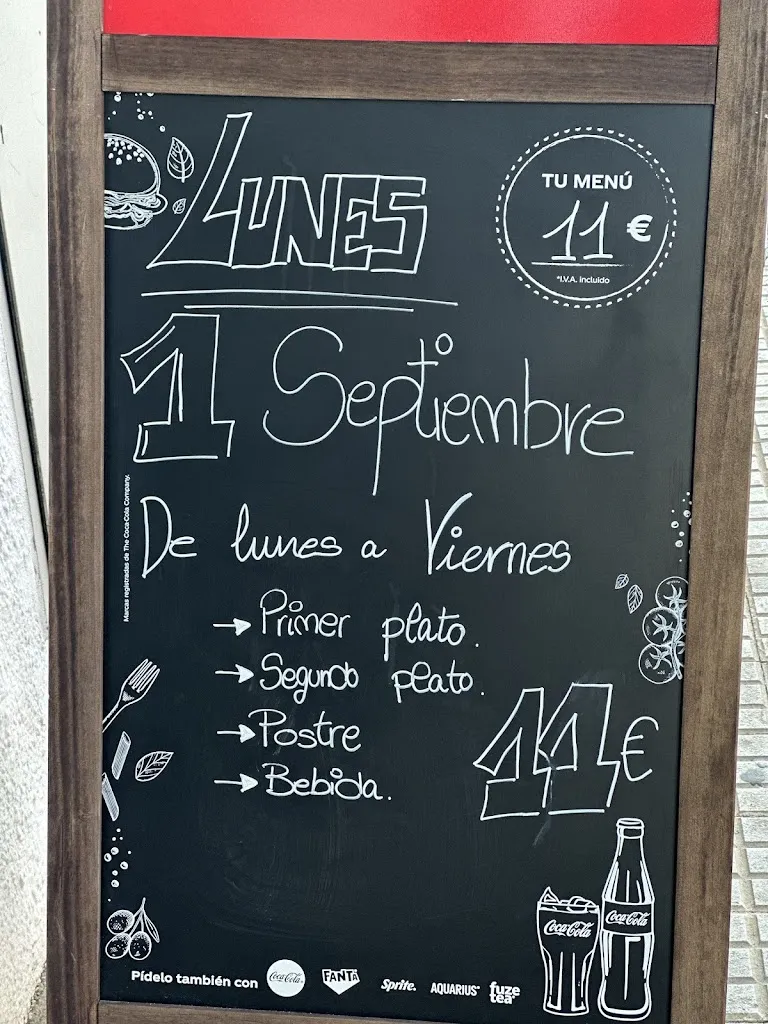 LUNES
TU MENÚ
11 €
*I.V.A. incluido
1 Septiembre
De lunes a Viernes
→ Primer plato.
→ Segundo plato.
→ Postre
→ Bebida.
11€
Marcas registradas de The Coca-Cola Company.
Coca-Cola
Coca-Cola
Pídelo también con Coca-Cola FANTA Sprite. AQUARIUS fuze tea